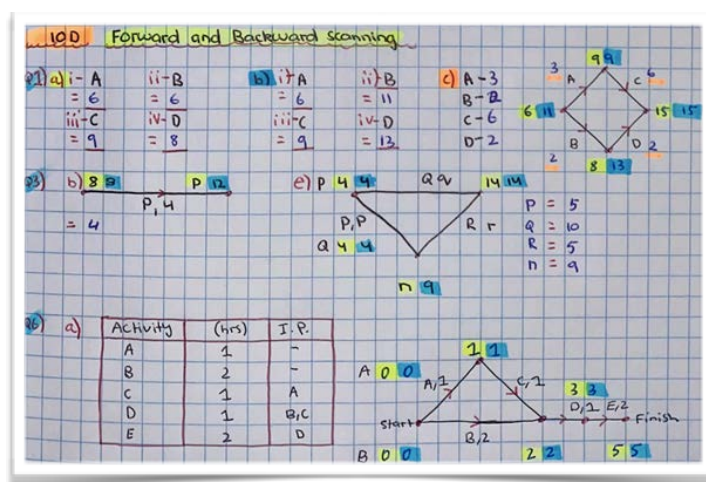 10D Forward and Backward scanning
Q1) a) i- A ii- B b) i) A ii) B c) A - 3
= 6 = 6 = 6 = 11 B - 2
iii- C iv- D iii- C iv- D C - 6
= 9 = 8 = 9 = 13 D - 2
9 9
3 A C 6
6 11 15 15
2 B D 2
8 13
Q3) b) 8 P 12
P, 4
= 4
e) P 4 4 Q q 14 14
P, P R r
Q 4 4
n 9
P = 5
Q = 10
R = 5
n = 9
Q6) a)
Activity (hrs) I.P.
A 1 -
B 2 -
C 1 A
D 1 B,C
E 2 D
1 1
A 0 0 A,1 C,1 3 3
D,1 E,2
Start Finish
B,2
B 0 0 2 2 5 5